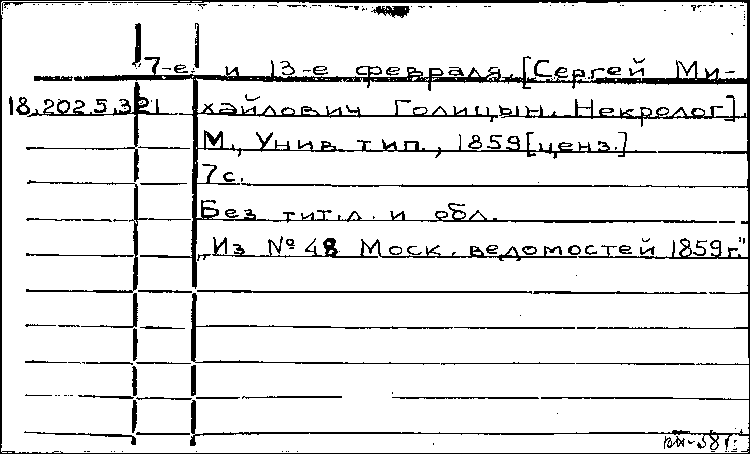 7-е и 13-е февраля. [Сергей Ми-
18.202.5.321 хайлович Голицын. Некролог].
М., Унив. тип., 1859 [ценз.].
7 с.
Без тит. л. и обл.
„Из № 48 Моск. ведомостей 1859 г."